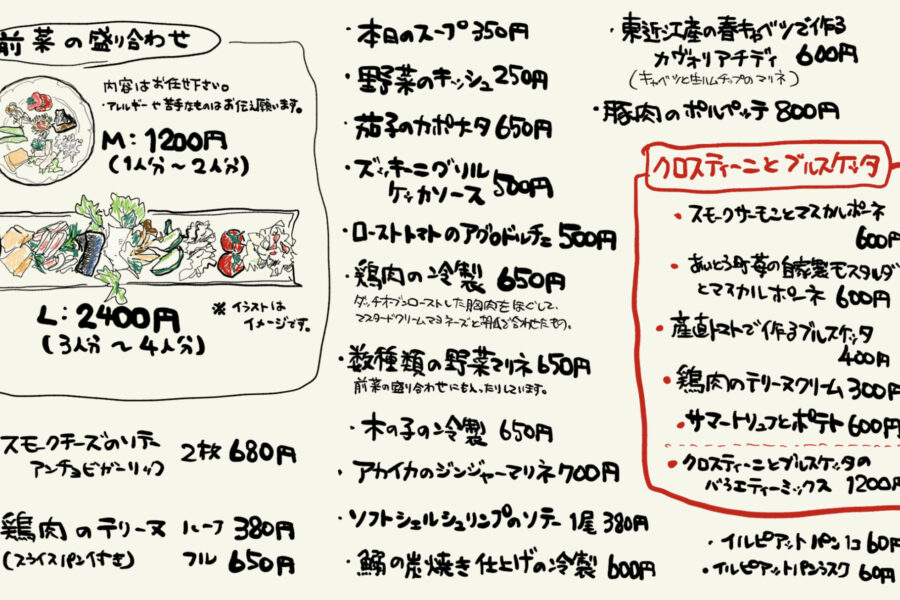 前菜の盛り合わせ
内容はお任せ下さい。
・アレルギーや苦手なものはお伝え願います。
M:1200円
(1人分〜2人分)
L:2400円
(3人分〜4人分)
※イラストは
イメージです。
スモークチーズのソテー
アンチョビガーリック
2枚 680円
鶏肉のテリーヌ ハーフ 380円
(スライスパン付すき) フル 650円
・本日のスープ 350円
・野菜のキッシュ 250円
・茄子のカポナータ 650円
・ズッキーニグリル
ケッカソース 500円
・ローストトマトのアグロドルチェ 500円
・鶏肉の冷製 650円
ダッチオーブンローストした胸肉をほぐして、
マスタードクリームマヨネーズと和えて合わせたもの。
・数種類の野菜マリネ 650円
前菜の盛り合わせにも入ったりしています。
・木の子の冷製 650円
・アカイカのジンジャーマリネ 700円
・ソフトシェルシュリンプのソテー 1尾 380円
・鰯の炭焼き仕上げの冷製 600円
・東近江産の春キャベツで作る
カヴォリアチディ 600円
(キャベツと生ハムチップのマリネ)
・豚肉のポルペッテ 800円
クロスティーニとブルスケッタ
・スモークサーモンとマスカルポーネ
600円
・あいとう町苺の自家製モスタルダ
とマスカルポーネ 600円
・産直トマトで作るブルスケッタ
400円
・鶏肉のテリーヌクリーム 300円
・サマートリュフとポテト 600円
・クロスティーニとブルスケッタの
バラエティーミックス 1200円
・イルピアットパン1コ 60円
・イルピアットパンラスク 60円